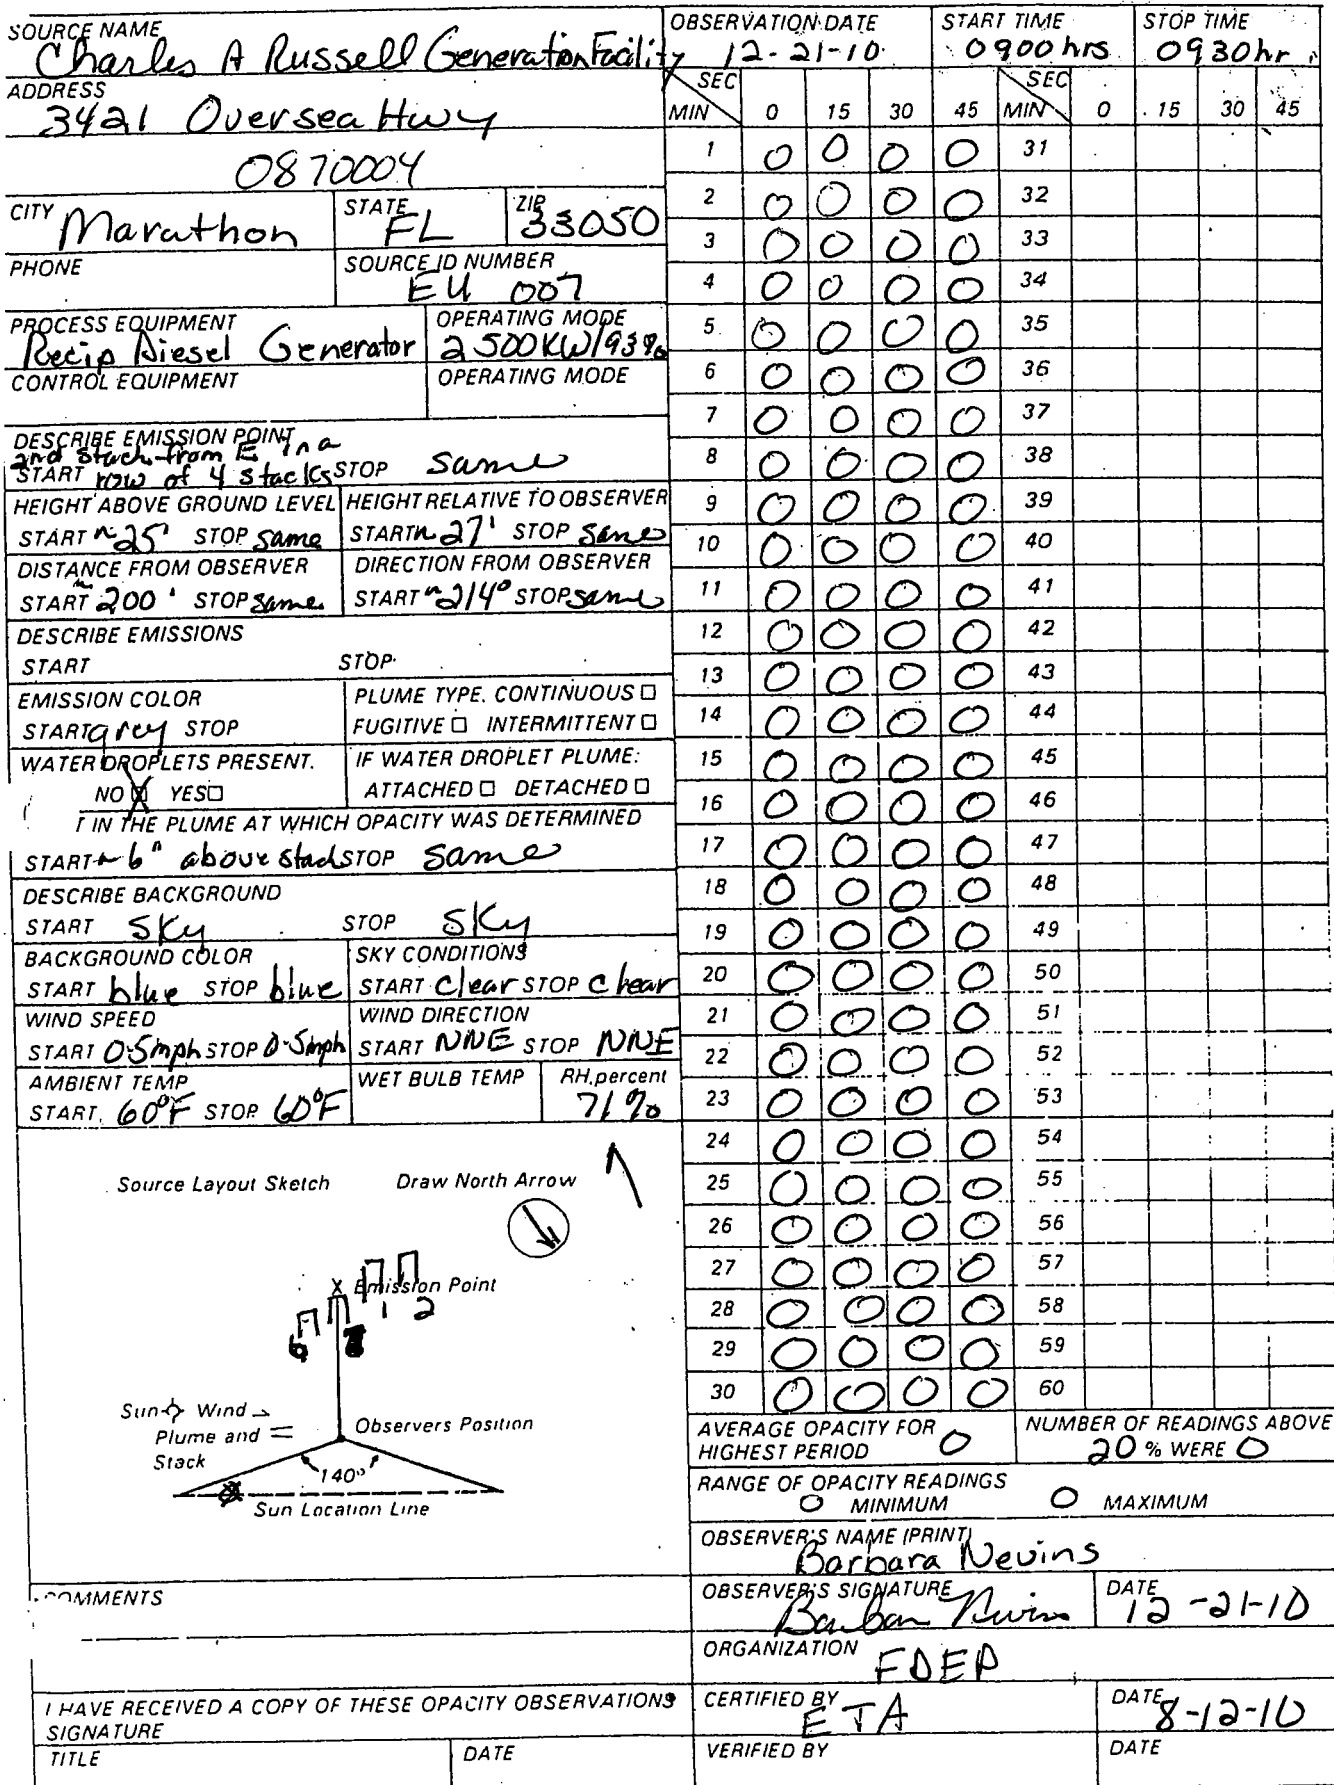 SOURCE NAME
Charles A Russell Generation Facility
ADDRESS
3421 Oversea Hwy
0870004
CITY Marathon STATE FL ZIP 33050
PHONE SOURCE ID NUMBER EU 007
PROCESS EQUIPMENT OPERATING MODE
Recip Diesel Generator 2500KW/93%
CONTROL EQUIPMENT OPERATING MODE
DESCRIBE EMISSION POINT
2nd stack from E in a
START row of 4 stacks STOP same
HEIGHT ABOVE GROUND LEVEL HEIGHT RELATIVE TO OBSERVER
START ~25' STOP same START ~27' STOP same
DISTANCE FROM OBSERVER DIRECTION FROM OBSERVER
START ~200' STOP same START ~214° STOP same
DESCRIBE EMISSIONS
START STOP
EMISSION COLOR PLUME TYPE. CONTINUOUS □
START grey STOP FUGITIVE □ INTERMITTENT □
WATER DROPLETS PRESENT. IF WATER DROPLET PLUME:
NO ☒ YES □ ATTACHED □ DETACHED □
T IN THE PLUME AT WHICH OPACITY WAS DETERMINED
START ~6" above stack STOP same
DESCRIBE BACKGROUND
START Sky STOP Sky
BACKGROUND COLOR SKY CONDITIONS
START blue STOP blue START clear STOP clear
WIND SPEED WIND DIRECTION
START 0-5mph STOP 0-5mph START NNE STOP NNE
AMBIENT TEMP WET BULB TEMP RH, percent
START 60°F STOP 60°F 71%
Source Layout Sketch Draw North Arrow
X Emission Point
1 2
6
Sun Wind
Plume and Observers Position
Stack
140°
Sun Location Line
COMMENTS
I HAVE RECEIVED A COPY OF THESE OPACITY OBSERVATIONS
SIGNATURE
TITLE DATE
OBSERVATION DATE START TIME STOP TIME
12-21-10 0900 hrs 0930 hr
SEC SEC
MIN 0 15 30 45 MIN 0 15 30 45
1 0 0 0 0 31
2 0 0 0 0 32
3 0 0 0 0 33
4 0 0 0 0 34
5 0 0 0 0 35
6 0 0 0 0 36
7 0 0 0 0 37
8 0 0 0 0 38
9 0 0 0 0 39
10 0 0 0 0 40
11 0 0 0 0 41
12 0 0 0 0 42
13 0 0 0 0 43
14 0 0 0 0 44
15 0 0 0 0 45
16 0 0 0 0 46
17 0 0 0 0 47
18 0 0 0 0 48
19 0 0 0 0 49
20 0 0 0 0 50
21 0 0 0 0 51
22 0 0 0 0 52
23 0 0 0 0 53
24 0 0 0 0 54
25 0 0 0 0 55
26 0 0 0 0 56
27 0 0 0 0 57
28 0 0 0 0 58
29 0 0 0 0 59
30 0 0 0 0 60
AVERAGE OPACITY FOR NUMBER OF READINGS ABOVE
HIGHEST PERIOD 0 20 % WERE 0
RANGE OF OPACITY READINGS
0 MINIMUM 0 MAXIMUM
OBSERVER'S NAME (PRINT)
Barbara Nevins
OBSERVER'S SIGNATURE DATE
Barbara Nevins 12-21-10
ORGANIZATION FDEP
CERTIFIED BY ETA DATE 8-12-10
VERIFIED BY DATE